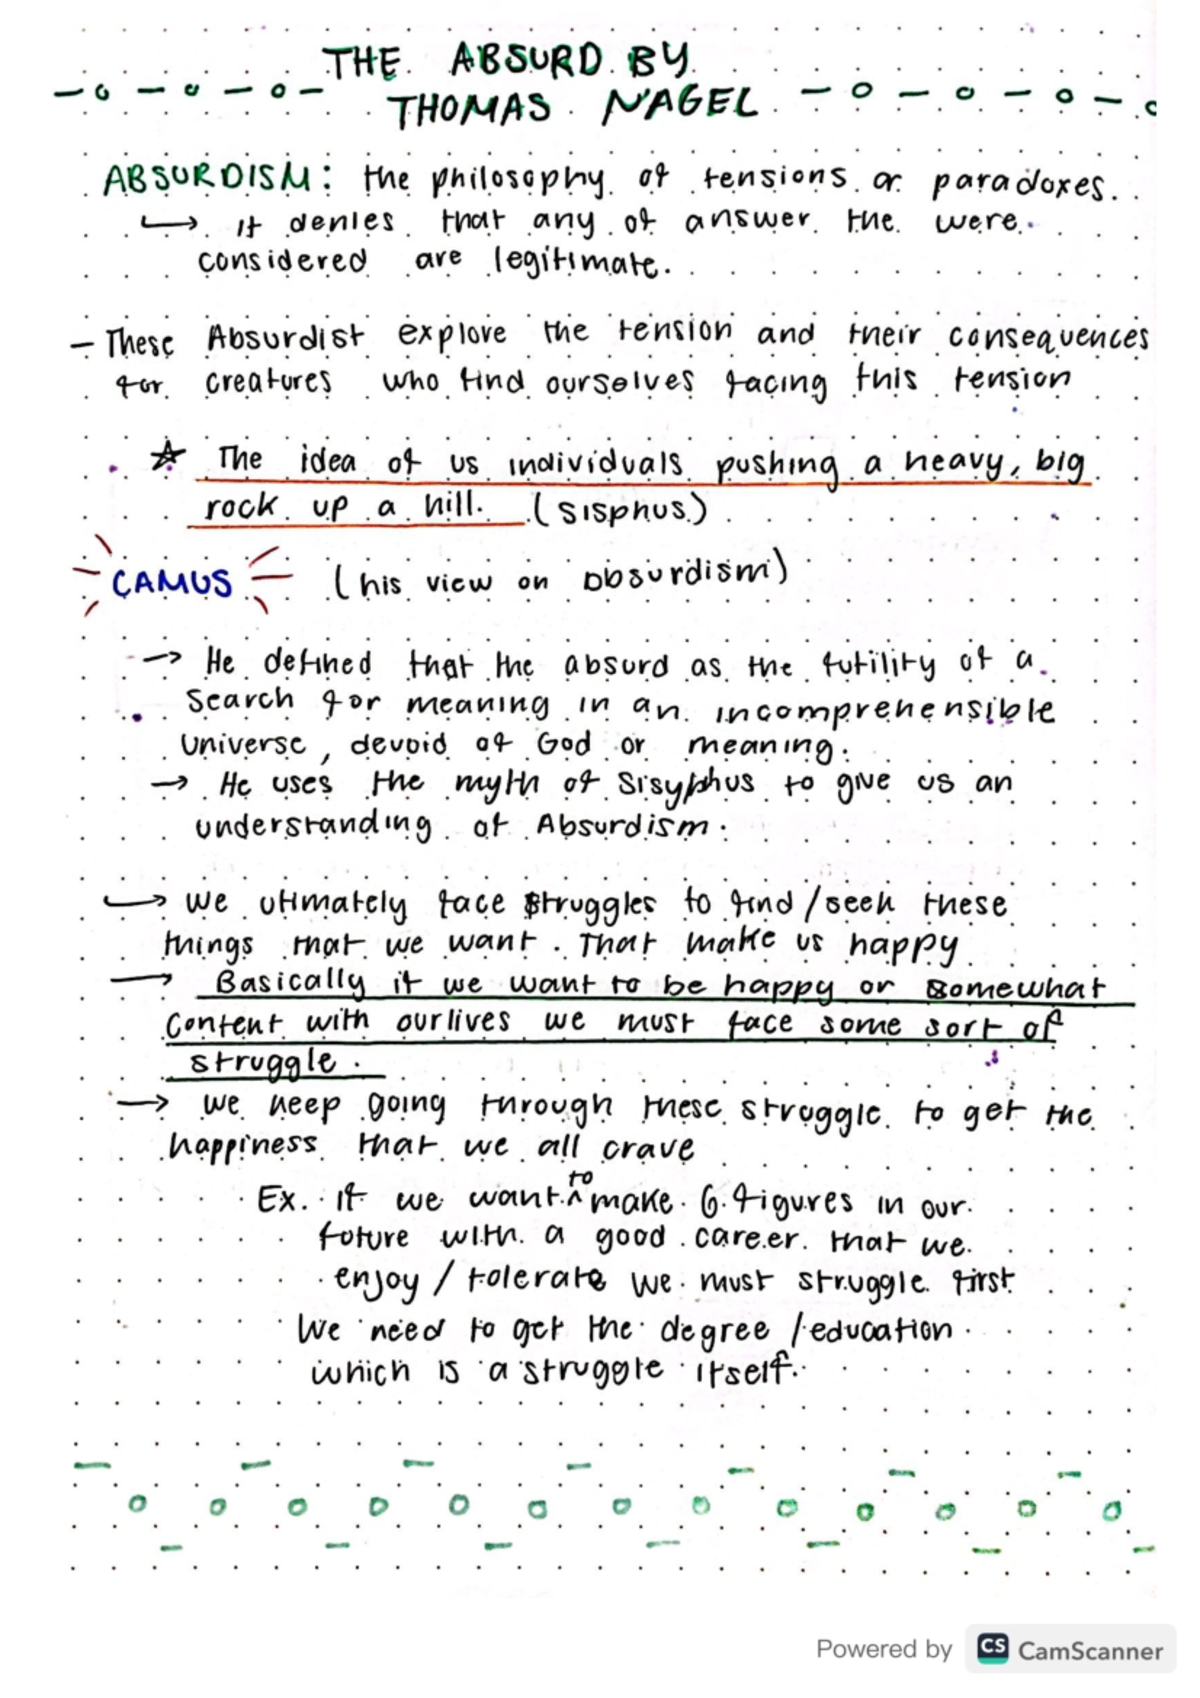 THE ABSURD BY
THOMAS NAGEL
ABSURDISM: the philosophy of tensions or paradoxes.
↳ it denies that any of answer the were
considered are legitimate.
- These Absurdist explore the tension and their consequences
for creatures who find ourselves facing this tension
☆ The idea of us individuals pushing a heavy, big
rock up a hill. (Sisphus)
CAMUS (his view on absurdism)
→ He defined that the absurd as the futility of a
search for meaning in an incomprehensible
universe, devoid of God or meaning.
→ He uses the myth of Sisyphus to give us an
understanding of Absurdism.
↳ we utimately face struggles to find/seek these
things that we want. That make us happy
→ Basically if we want to be happy or somewhat
content with our lives we must face some sort of
struggle.
→ we keep going through these struggle to get the
happiness that we all crave
Ex. if we want to make 6 figures in our
future with a good career that we
enjoy / tolerate we must struggle first
We need to get the degree / education
which is a struggle itself.
Powered by CS CamScanner